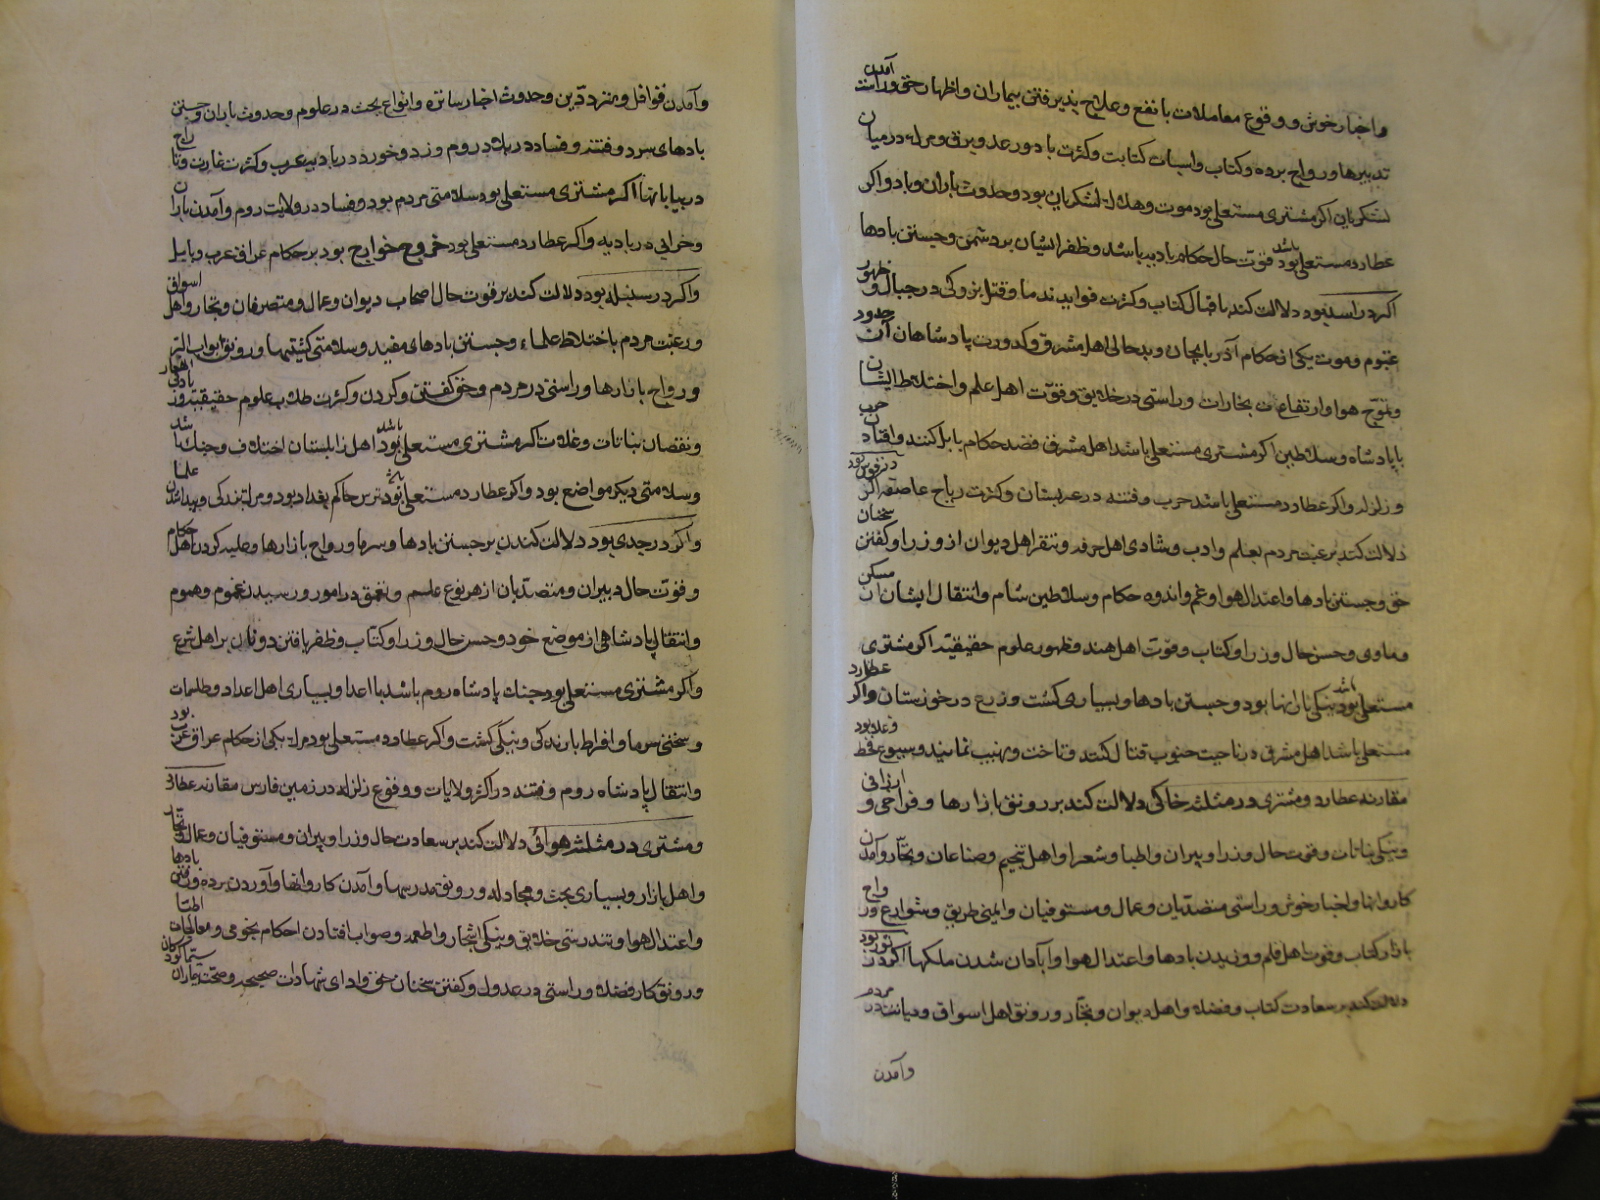 واخبار خوش و وقوع معاملات با نفع و علاج پذیرفتن بیماران و اظهار حق و راست آمدن
تدبیرها و رواج برده و کتاب و اسباب کتابت و کثرت باد و رعد و برق و مرک در میان
لشکریان اکر مشتری مستعلی بود موت و هلاک لشکریان بود و حدوث باران و باد و اکر
عطارد مستعلی بود باشد قوت حال حکام بادیه باشد و ظفر ایشان بر دشمن و جستن بادها
اکر در اسد بود دلالت کند باقبال کتاب و کثرت فواید ندما و قتل بزرکی در جبال و ظهور
غیوم و موت یکی از حکام آذربایجان و بدحالی اهل مشرق و کدورت پادشاهان آن حدود
و تموّج هوا و ارتفاعات بخارات و راستی در خلایق و قوّت اهل علم و اختلاط ایشان
با پادشاه و سلاطین اکر مشتری مستعلی باشد اهل مشرق قصد حکام بابل کنند و افتادن حرب
و زلزله و اکر عطارد مستعلی باشد حرب و فتنه در عربستان و کثرت ریاح عاصفه اکر در قوس بود
دلالت کند بر رغبت مردم بعلم و ادب و شادی اهل حرفه و تنقر اهل دیوان از وزرا و کفتن سخنان
حق و جستن بادها و اعتدال هوا و غم و اندوه حکام و سلاطین شام و انتقال ایشان از مسکن
و ماوی و حسن حال وزرا و کتاب و قوّت اهل هند و ظهور علوم حقیقیّه اکر مشتری
مستعلی بود باشد نیکی بارانها بود و جستن بادها و بسیاری کشت و زرع در خوزستان و اکر عطارد
مستعلی باشد اهل مشرق در ناحیت جنوب قتال کنند و تاخت و نهیب نمایند و شیوع قحط و غلا بود
مقارنه عطارد و مشتری در مثلثه خاکی دلالت کند بر رونق بازارها و فراخی و ارزانی
و نیکی نباتات و قوت حال وزرا و پیران و اطبا و شعرا و اهل تنجیم و صناعان و تجّار و آمدن
کاروانها و اخبار خوش و راستی متصدّیان و عمال و مستوفیان و ایمنی طریق و شوارع و رواج
بازار کتاب و قوت اهل قلم و وزیدن بادها و اعتدال هوا و آبادان شدن ملکها اکر در ثور بود
دلالت کند بر سعادت کتاب و فضلا و اهل دیوان و تجّار و رونق اهل اسواق و دیانت در مردم
و آمدن
و آمدن قوافل و تردّد دین و حدوث اخبار سائره و انواع بحث در علوم و حدوث باران و جستن
بادهای سرد و فتنه و فساد در بلاد روم و زد و خورد در بادیه عرب و کثرت غارت و تاراج
در بیابانها اکر مشتری مستعلی بود سلامتی مردم بود و فساد در ولایت روم و آمدن باران
و خرابی در بادیه و اکر عطارد مستعلی بود خروج خوارج بود بر حکام عراق عرب و بابل
و اکر در سنبله بود دلالت کند بر قوت حال اصحاب دیوان و عمال و متصرفان و تجار و اهل اسواق
و رغبت مردم باختلاط علماء و جستن بادهای مفید و سلامتی کشتیها و رونق ابواب البر
و رواج بازارها و راستی در مردم و حق کفتن و کردن و کثرت طلاب علوم حقیقیه و روز بادی اشجار
و نقصان نباتات و غلات اکر مشتری مستعلی بود باشد اهل زابلستان اختلاف و جنک باشد
و سلامتی دیکر مواضع بود و اکر عطارد مستعلی بود باشد ترس حاکم بغداد بود و مرتبه بلندی و پیدا شدن علما
و اکر در جدی بود دلالت کند بر جستن بادها و سرما و رواج بازارها و صلیه کردن اهل حکام
و قوت حال دبیران و متصدّیان از هر نوع علم و تعمق در امور و رسیدن غموم و هموم
و انتقال پادشاهی از موضع خود و حسن حال وزرا و کتاب و ظفر یافتن دونان بر اهل شرع
و اکر مشتری مستعلی بود جنک پادشاه روم باشد با اعدا و بسیاری اهل اعداد و طلسمات
و سختی سرما و افراط بارندکی و نیکی کشت و اکر عطارد مستعلی بود مرک یکی از حکام عراق عرب بود
و انتقال پادشاه روم و فتنه در اکثر ولایات و وقوع زلزله در زمین فارس مقارنه عطارد
و مشتری در مثلثه هوائی دلالت کند بر سعادت حال وزرا و پیران و مستوفیان و عمال و تجار
و اهل بازار و بسیاری بحث و مجادله و رونق مدرسها و آمدن کاروانها و آوردن برده و رفتن بادها
و اعتدال هوا و تندرستی خلایق و نیکی اشجار و اطعمه و صواب افتادن احکام نجومی و معالجات اطبّا
و رونق کار فضلا و راستی در عدول و کفتن سخنان حق و ادای شهادات صحیحه و صحّت بیماران